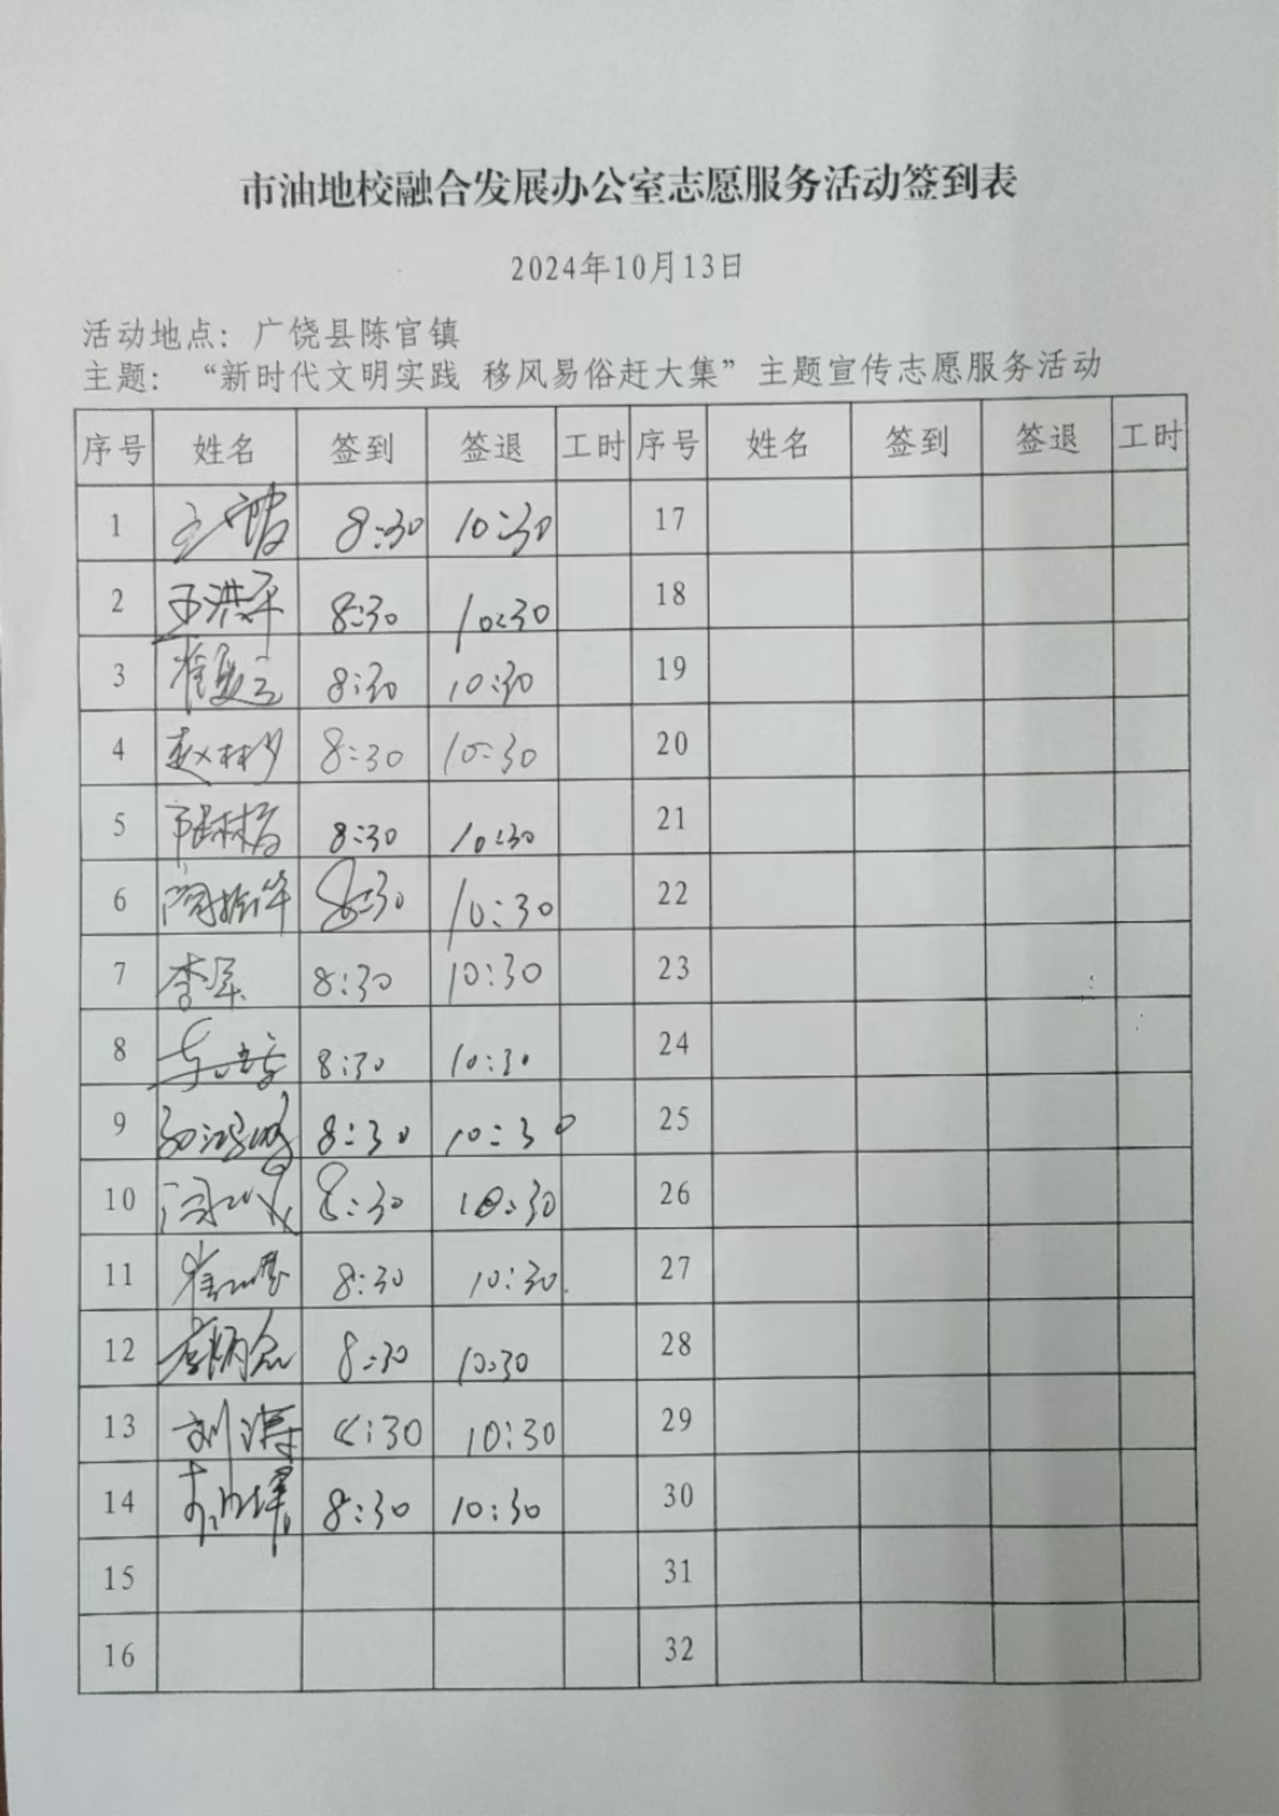 市油地校融合发展办公室志愿服务活动签到表
2024年10月13日
活动地点：广饶县陈官镇
主题：“新时代文明实践 移风易俗赶大集”主题宣传志愿服务活动
序号 姓名 签到 签退 工时 序号 姓名 签到 签退 工时
1 8:30 10:30 17
2 王洪平 8:30 10:30 18
3 8:30 10:30 19
4 8:30 10:30 20
5 8:30 10:30 21
6 8:30 10:30 22
7 李军 8:30 10:30 23
8 8:30 10:30 24
9 8:30 10:30 25
10 8:30 10:30 26
11 8:30 10:30 27
12 8:30 10:30 28
13 刘涛 8:30 10:30 29
14 8:30 10:30 30
15 31
16 32